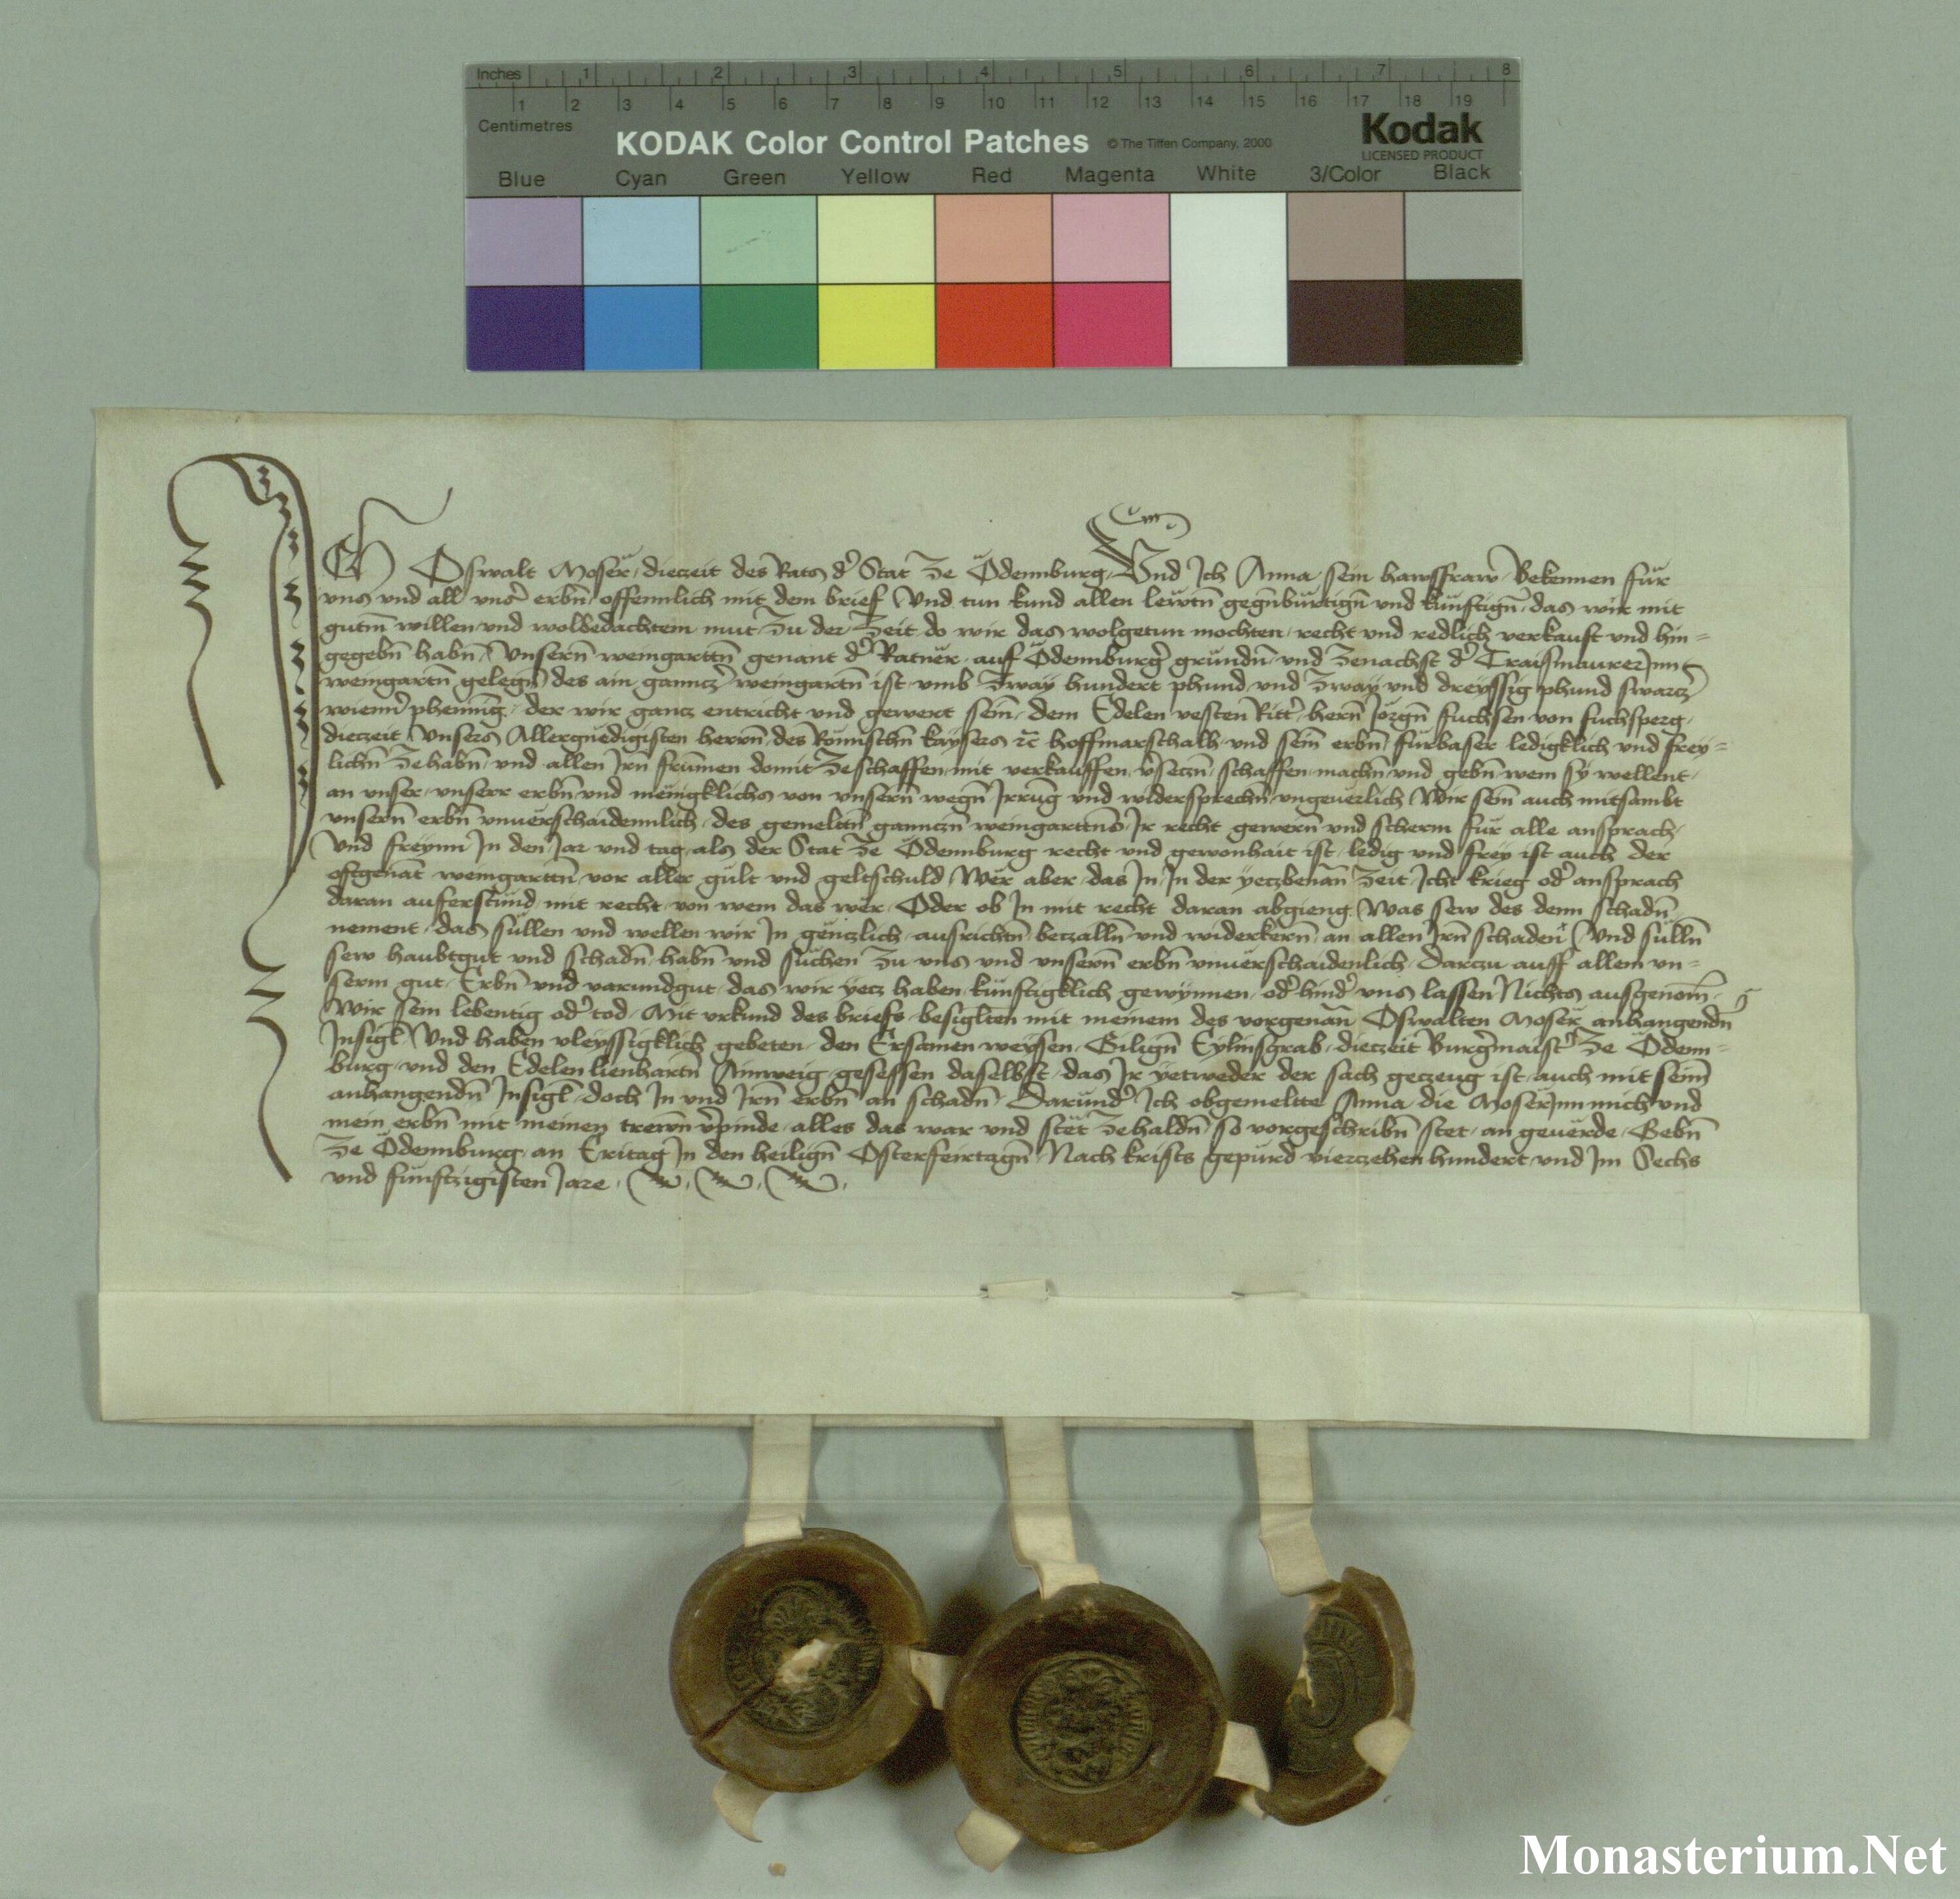 Inches 1 2 3 4 5 6 7 8
1 2 3 4 5 6 7 8 9 10 11 12 13 14 15 16 17 18 19
Centimetres
KODAK Color Control Patches © The Tiffen Company, 2000 Kodak
LICENSED PRODUCT
Blue Cyan Green Yellow Red Magenta White 3/Color Black
Ich Oswalt Moser, dieczeit des Rats d' Stat ze Ödennburg, Und Ich Anna sein hawsfraw Bekennen für
vns vnd all vns' erbn̄ offennlich mit dem brief Vnd tun kund allen lewtn̄ gegn̄burtign̄ vnd künftign̄, das wir mit
gutm̄ willen vnd wolbedachtem mut, zu der zeit do wir das wolgetun mochten, recht vnd redlich verkauft vnd hin=
gegebn̄ habn̄, Vnsern̄ weingarttn̄ genant d' Ratner, auf Ödennburg' gründn̄, vnd zenachst d' Traismaurerinn
weingartn̄ gelegn̄ des ain gancz' weingartn̄ ist, vmb zway hundert phund vnd zway vnd dreyssig phund swarcz'
wienn' phennīg, der wir gancz entricht vnd gewert sein̄, dem Edelen vesten Ritt' hern̄ Jörgn̄ fuchsen von fuchsperg,
dieczeit Vnsers Allergnedigisten herrn̄, des Römischn̄ kaysers ꝛc̄ hoffmarschalh vnd sein̄ erbn̄, fürbaser ledigklich vnd frey=
lichn̄ zehabn̄, vnd allen Irn̄ frūmen domit zeschaffen, mit verkauffen, v'seczn̄, schaffen, machn̄ vnd gebn̄ wem sy wellent,
an vnser, vnserr erbn̄ vnd menigklichs von vnsern̄ wegn̄ Irrūg vnd widersprechn̄ vngeuerlich Wir sein̄ auch mitsambt
vnsern̄ erbn̄ vnuerschaidennlich, des gemeltn̄ ganczn̄ weingarttns, Ir recht gewern̄ vnd scherm für alle ansprach,
Vnd freyung In den Jar vnd tag, als der Stat ze Ödennburg recht vnd gewonhait ist, ledig vnd frey ist auch der
oftgenāt weingarttn̄ vor aller gült vnd geltschuld, Wer aber das In, In der yeczbenan̄ zeit, Icht krieg od' ansprach
daran auferstünd mit recht, von wem das wer, Oder ob In mit recht daran abgieng, Was sew des denn schadn̄
nement, das süllen vnd wellen wir In genczlich ausrichtn̄, beczalln̄ vnd widerkern̄, an allen Irn̄ schaden, Vnd sülln̄
sew haubtgut vnd schadn̄, habn̄ vnd suchen zu vns vnd vnsern̄ erbn̄ vnuerschaidenlich, Darczu auff allem vn=
serm gut, Erbn̄ vnd varundgut, das wir yecz haben, künftigklich gewynnen, od' hind' vns lassen Nichts ausgenom̄,
Wir sein lebentig od' tod, Mit vrkund des briefs, besiglten mit meinem des vorgenan̄ Oswalten Moser anhangendn̄
Insigl Vnd haben vleyssigklich gebeten, den Ersamen weysen, Gilign̄ Eylinsgrab, dieczeit Burg'maist' ze Ödenn=
burg, vnd den Edelen lienhartn̄ Ainweig, gesessen daselbst, das Ir yetweder der sach geczeug ist, auch mit seim̄
anhangendn̄ Insigl, doch In vnd Irn̄ erbn̄ an schadn̄, Darund' Ich obgemeltte Anna die Moserinn mich vnd
mein erbn̄ mit meinen trewn̄ v'pinde, alles das war vnd stet zehaldn̄ so vorgeschribn̄ stet, an geuerde, Gebn̄
ze Ödennburg, an Eritag In den heilign̄ Osterfeirtagn̄, Nach krists gepurd vierczehen hundert vnd Im Sechs
vnd funftzigisten Jare,
Monasterium.Net